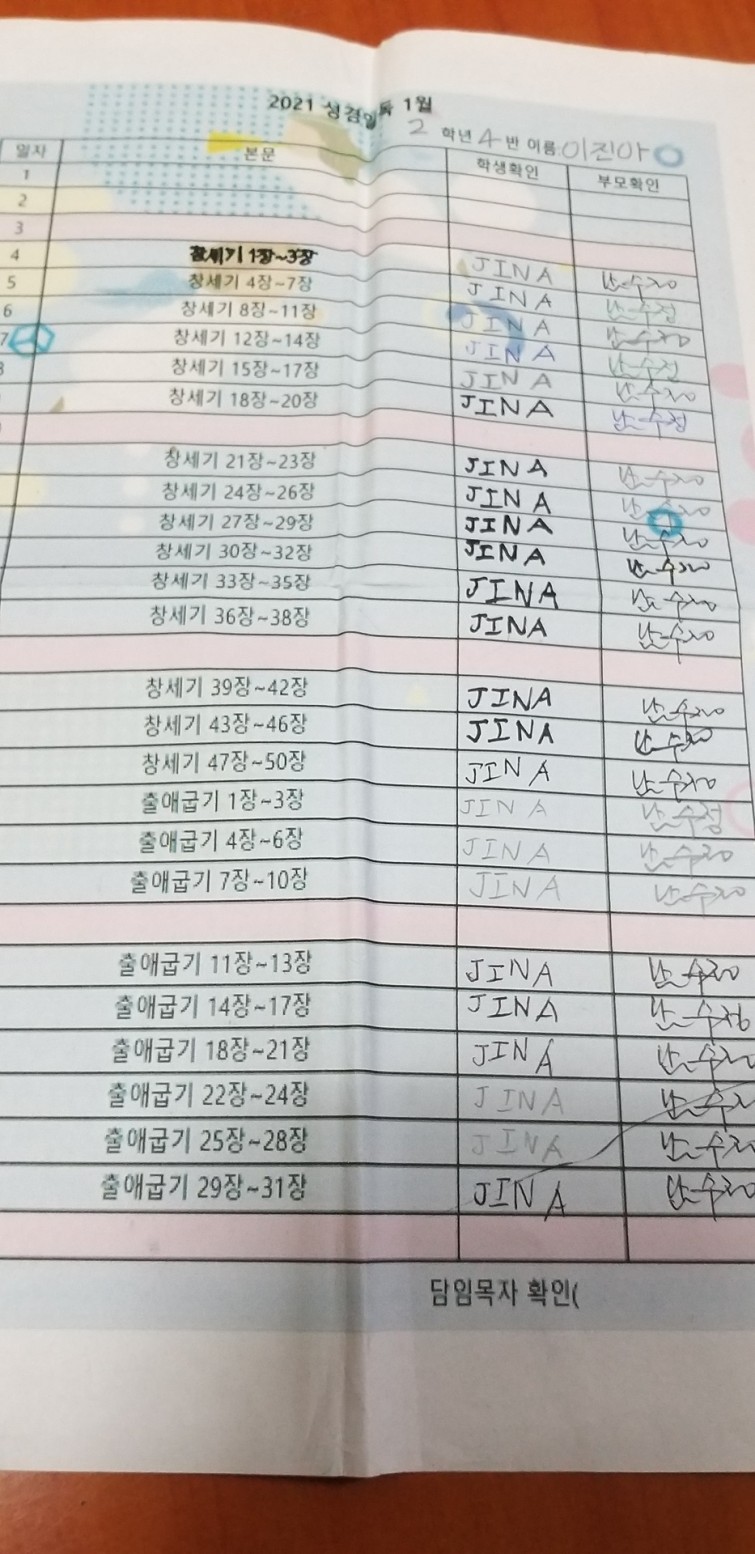 2021 성경일독 1월
2 학년 4 반 이름 이진아
일자 본문 학생확인 부모확인
1
2
3
4 창세기 1장~3장 JINA 난수정
5 창세기 4장~7장 JINA 난수정
6 창세기 8장~11장 JINA 난수정
7 창세기 12장~14장 JINA 난수정
창세기 15장~17장 JINA 난수정
창세기 18장~20장 JINA 난수정
창세기 21장~23장 JINA 난수정
창세기 24장~26장 JINA 난수정
창세기 27장~29장 JINA 난수정
창세기 30장~32장 JINA 난수정
창세기 33장~35장 JINA 난수정
창세기 36장~38장 JINA 난수정
창세기 39장~42장 JINA 난수정
창세기 43장~46장 JINA 난수정
창세기 47장~50장 JINA 난수정
출애굽기 1장~3장 JINA 난수정
출애굽기 4장~6장 JINA 난수정
출애굽기 7장~10장 JINA 난수정
출애굽기 11장~13장 JINA 난수정
출애굽기 14장~17장 JINA 난수정
출애굽기 18장~21장 JINA 난수정
출애굽기 22장~24장 JINA 난수정
출애굽기 25장~28장 JINA 난수정
출애굽기 29장~31장 JINA 난수정
담임목자 확인(